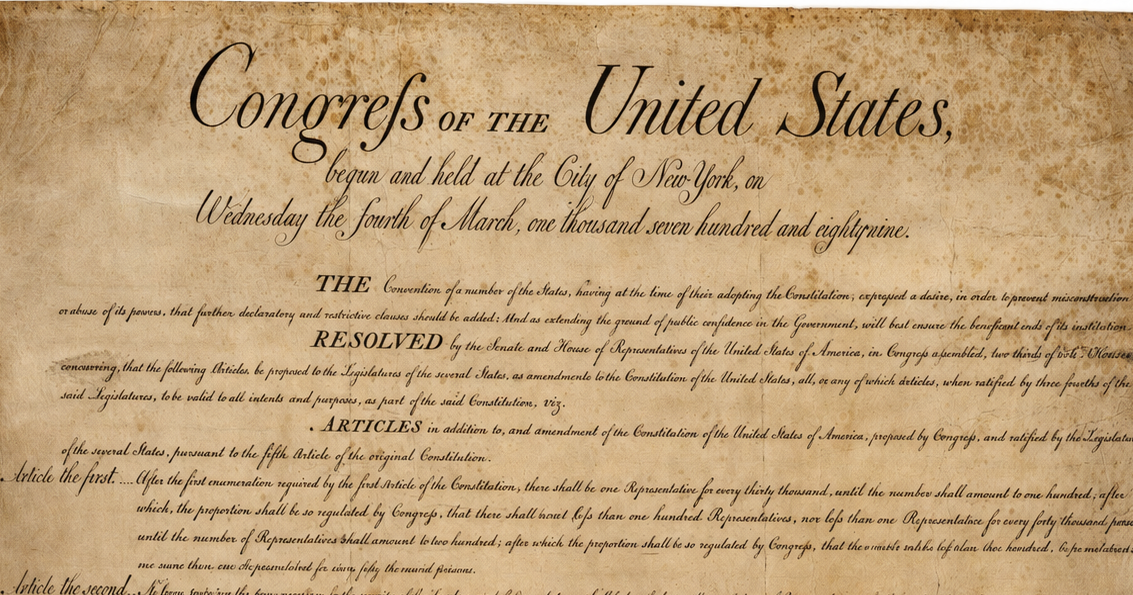 Congreſs OF THE United States,
begun and held at the City of New-York, on
Wednesday the fourth of March, one thousand seven hundred and eighty nine.
THE Convention of a number of the States, having at the time of their adopting the Constitution, expressed a desire, in order to prevent misconstruction
or abuse of its powers, that further declaratory and restrictive clauses should be added: And as extending the ground of public confidence in the Government, will best ensure the beneficent ends of its institution
RESOLVED by the Senate and House of Representatives of the United States of America, in Congreſs aſsembled, two thirds of
concurring, that the following Articles, be proposed to the Legislatures of the several States, as amendments to the Constitution of the United States, all, or any of which articles, when ratified by three fourths of the
said Legislatures, to be valid to all intents and purposes, as part of the said Constitution, viz.
. ARTICLES in addition to, and amendment of the Constitution of the United States of America, proposed by Congreſs, and ratified by the Legislatur
of the several States, pursuant to the fifth Article of the original Constitution.
Article the first. .... After the first enumeration required by the first Article of the Constitution, there shall be one Representative for every thirty thousand, until the number shall amount to one hundred; after
which, the proportion shall be so regulated by Congreſs, that there shall leſs than one hundred Representatives, nor leſs than one for every forty thousand
until the number of Representatives shall amount to two hundred; after which the proportion shall be so regulated by Congreſs, that the
Article the second